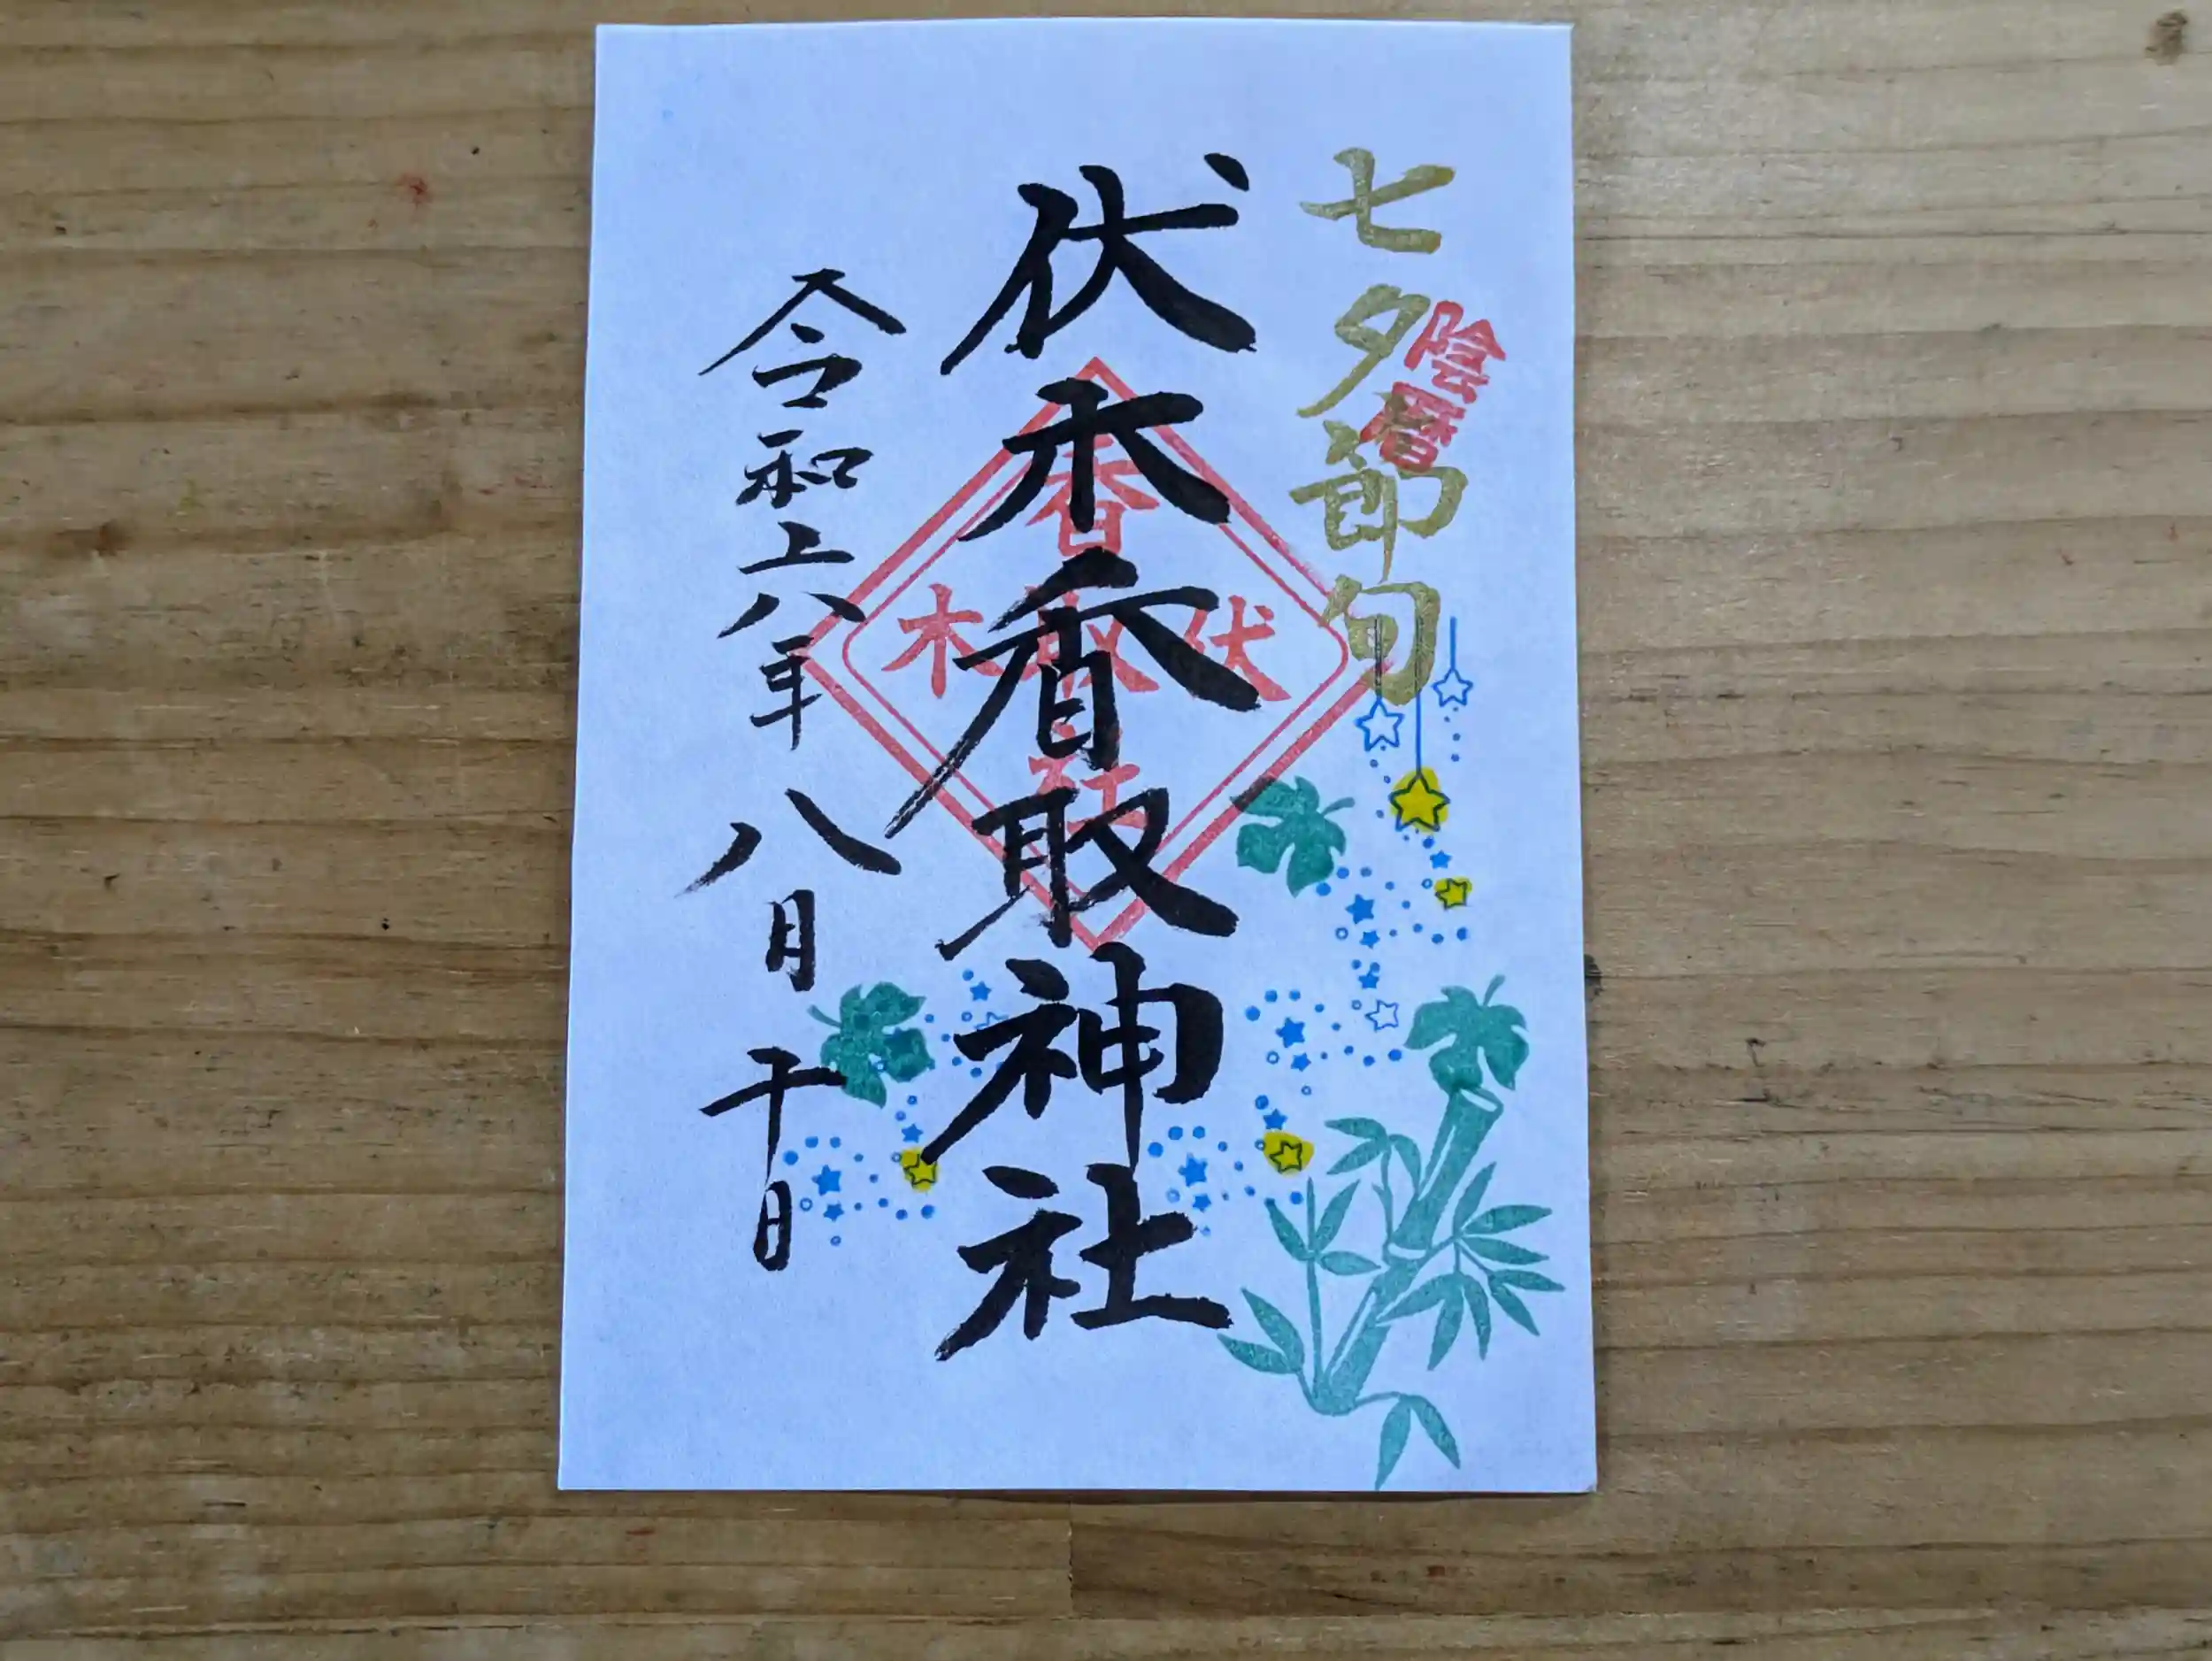 七夕節句
陰暦
伏木香取神社
伏木
香取社
令和六年八月十日